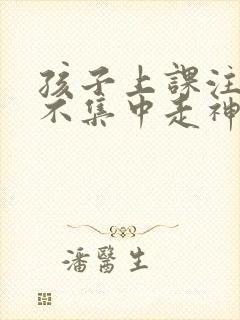 孩子上課注
不集中走神
潘醫生